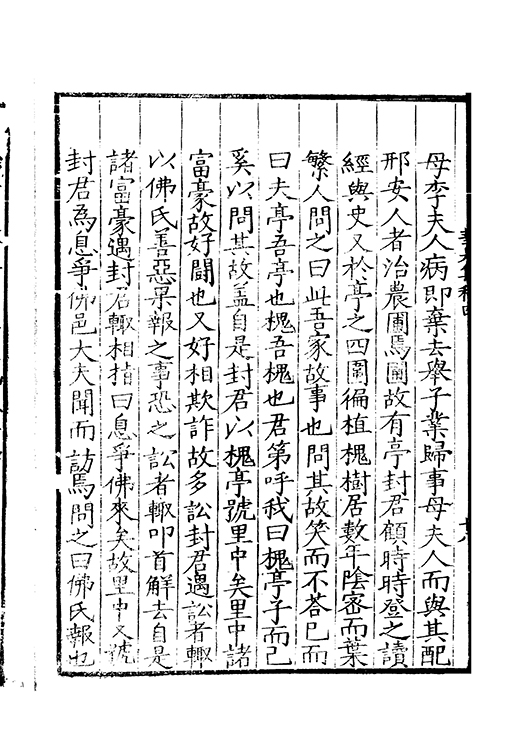 母李夫人病即棄去舉子業歸事母夫人而與其配
邢安人者治農圃焉圃故有亭封君顧時時登之讀
經與史又於亭之四圍徧植槐樹居數年陰密而葉
繁人問之曰此吾家故事也問其故笑而不荅已而
曰夫亭吾亭也槐吾槐也君第呼我曰槐亭子而已
奚以問其故盖自是封君以槐亭號里中矣里中諸
富豪故好闘也又好相欺詐故多訟封君遇訟者輙
以佛氏善惡果報之事恐之訟者輙叩首解去自是
諸富豪遇封君輙相指曰息爭佛來矣故里中又號
封君為息爭佛邑大夫聞而訪焉問之曰佛氏報也